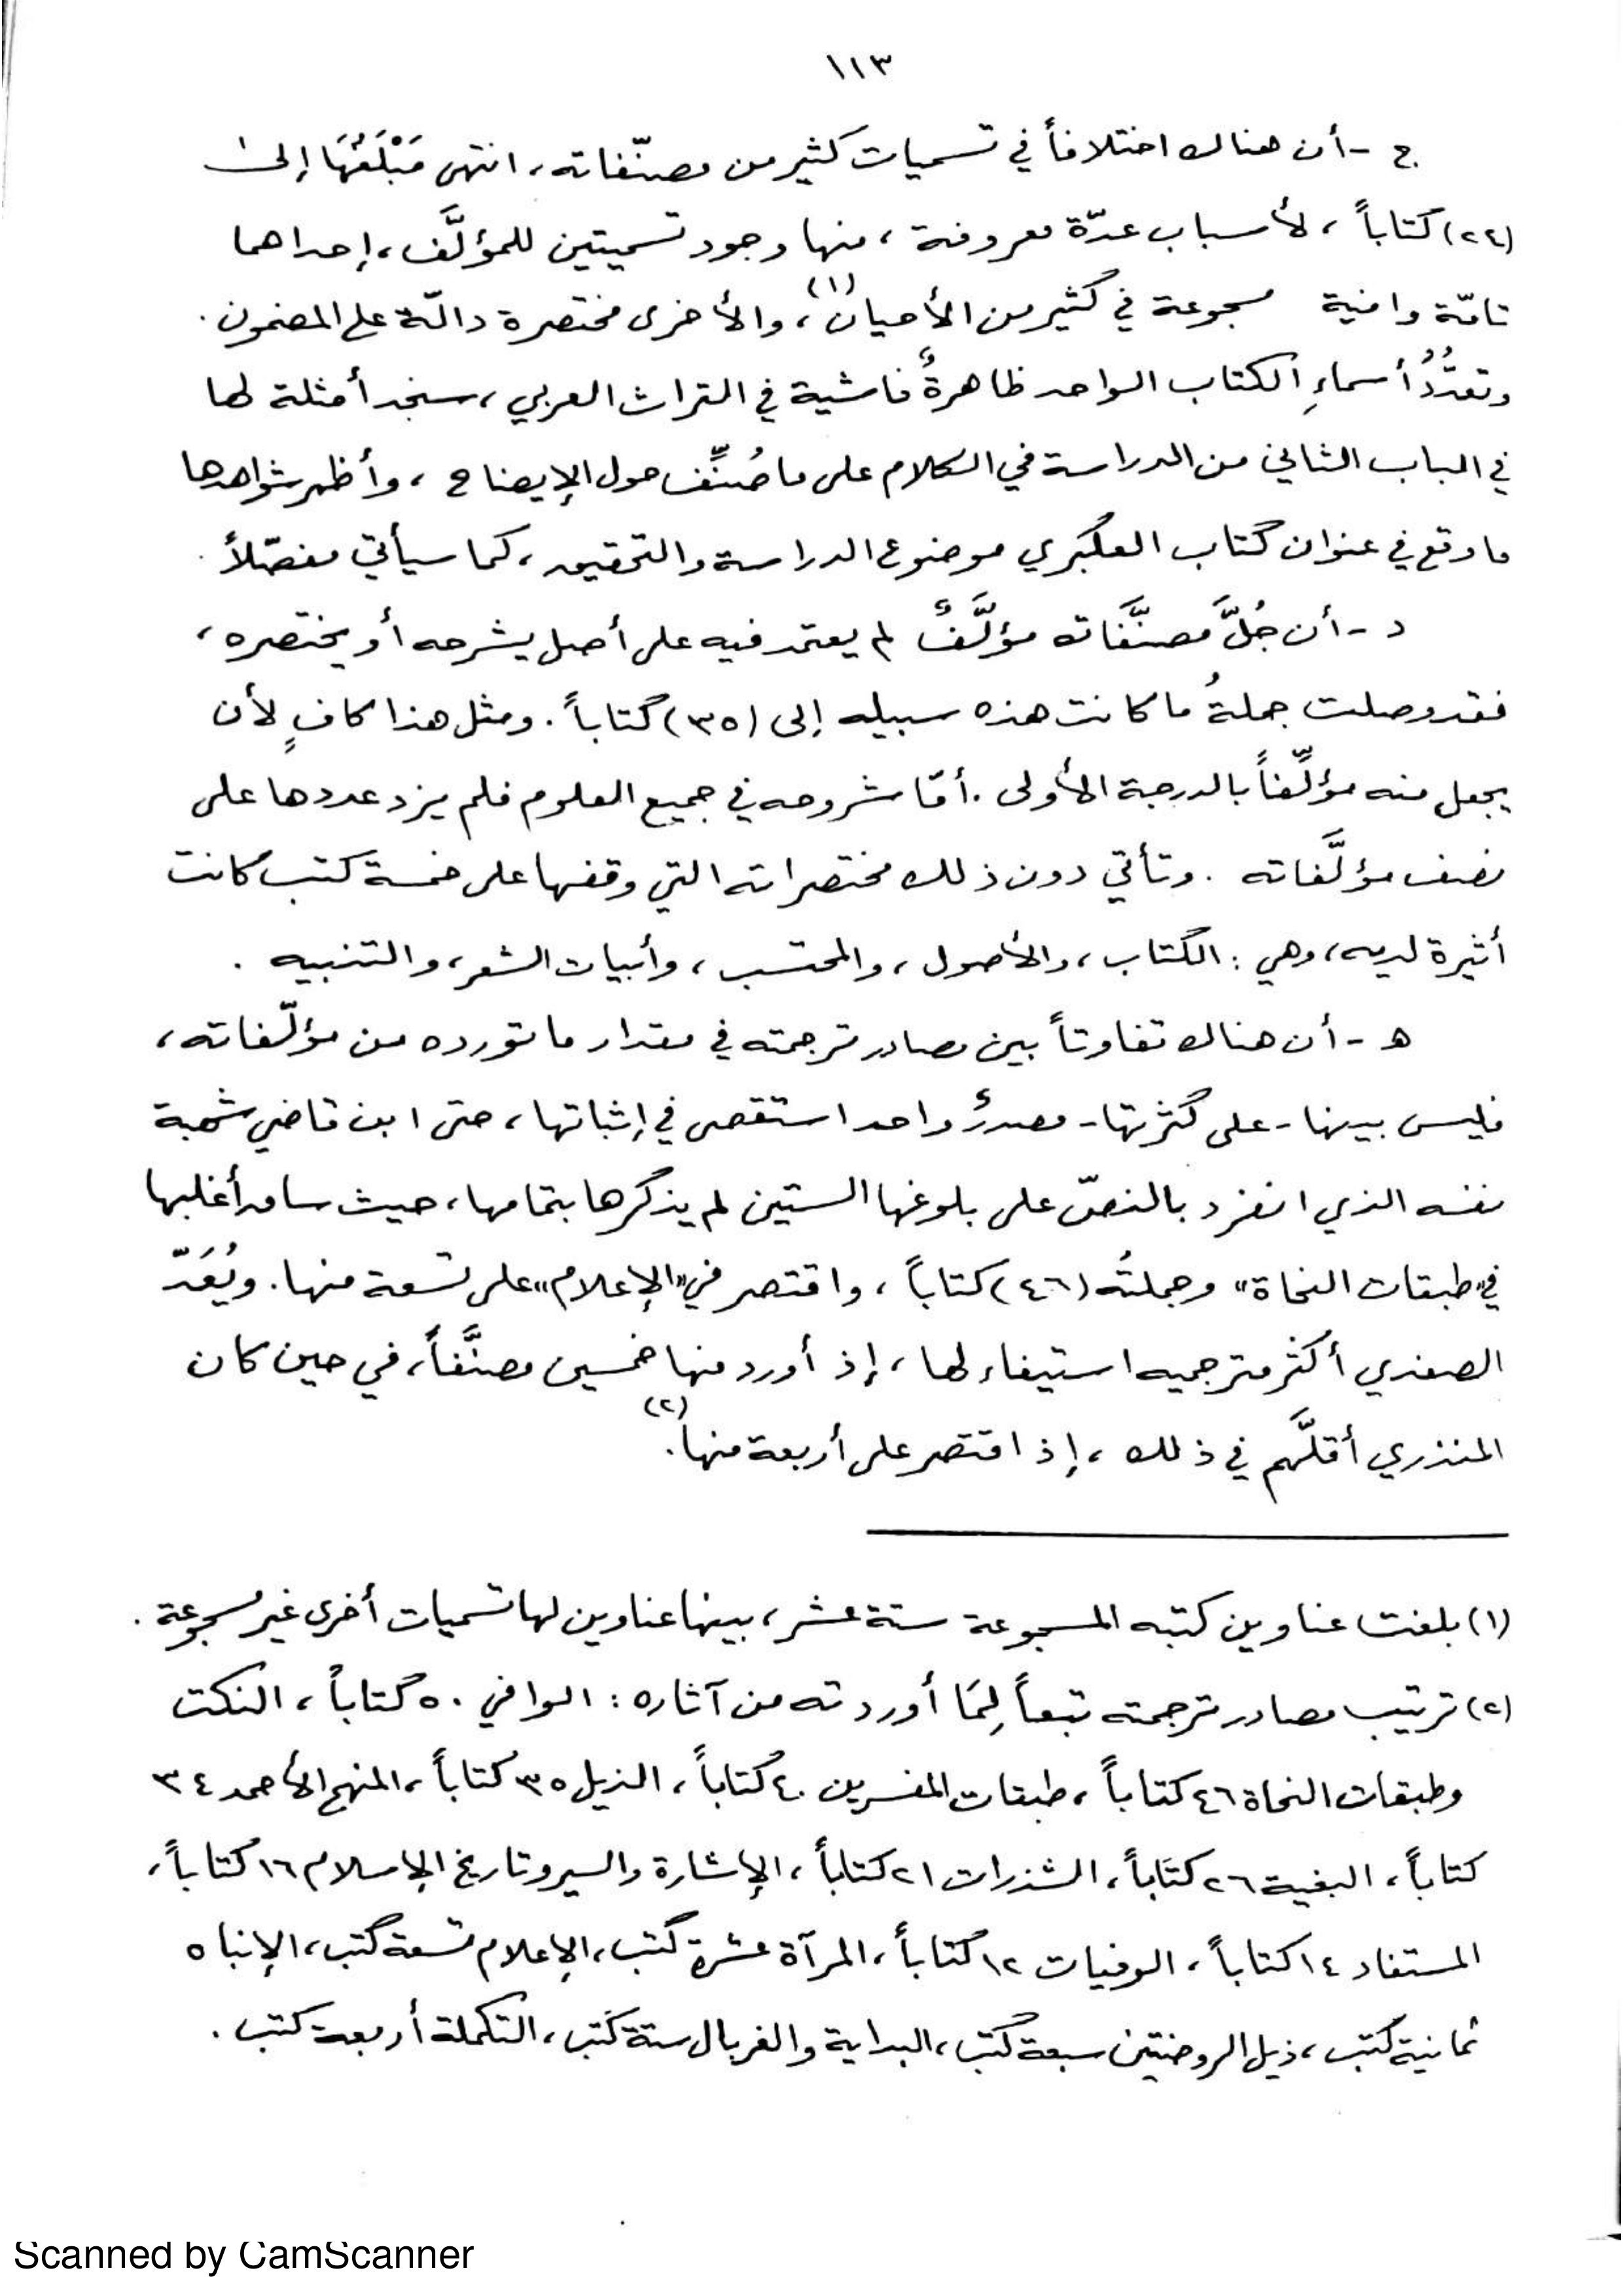 ١١٣
ج - أن هناك اختلافاً في تسميات كثير من مصنّفاته، انتهى مَبْلَغُهَا إلى
(٢٤) كتاباً، لأسباب عدّة معروفة، منها وجود تسميتين للمؤلَّف، إحداهما
تامّة وافية مسجوعة في كثير من الأحيان(١)، والأخرى مختصرة دالّة على المضمون.
وتعدُّدُ أسماءِ الكتاب الواحد ظاهرةٌ فاشية في التراث العربي، سنجد أمثلة لها
في الباب الثاني من الدراسة في الكلام على ما صُنِّف حول الإيضاح، وأظهر شواهدها
ما وقع في عنوان كتاب العكبري موضوع الدراسة والتحقيق، كما سيأتي مفصّلاً.
د - أن جُلَّ مصنَّفاته مؤلَّفٌ لم يعتمد فيه على أصل يشرحه أو يختصره،
فقد وصلت جملةُ ما كانت هذه سبيله إلى (٣٥) كتاباً. ومثل هذا كافٍ لأن
يجعل منه مؤلِّفاً بالدرجة الأولى. أمّا شروحه في جميع العلوم فلم يزد عددها على
نصف مؤلَّفاته. وتأتي دون ذلك مختصراته التي وقفها على خمسة كتب كانت
أثيرة لديه، وهي: الكتاب، والأصول، والمحتسب، وأبيات الشعر، والتنبيه.
هـ - أن هناك تفاوتاً بين مصادر ترجمته في مقدار ما تورده من مؤلّفاته،
فليس بينها - على كثرتها - مصدرٌ واحد استقصى في إثباتها، حتى ابن قاضي شهبة
نفسه الذي انفرد بالنصّ على بلوغها الستين لم يذكرها بتمامها، حيث ساق أغلبها
في «طبقات النحاة» وجملتُه (٤٦) كتاباً، واقتصر في «الإعلام» على تسعة منها. ويُعَدّ
الصفدي أكثر مترجميه استيفاء لها، إذ أورد منها خمسين مصنَّفاً، في حين كان
المنذري أقلَّهم في ذلك، إذ اقتصر على أربعة منها(٢).
(١) بلغت عناوين كتبه المسجوعة ستة عشر، بينها عناوين لها تسميات أخرى غير مسجوعة.
(٢) ترتيب مصادر ترجمته تبعاً لِمَا أوردته من آثاره: الوافي ٥٠ كتاباً، النكت
وطبقات النحاة ٤٦ كتاباً، طبقات المفسرين ٤٠ كتاباً، الذيل ٣٥ كتاباً، المنهج الأحمد ٣٤
كتاباً، البغية ٢٦ كتاباً، الشذرات ٢١ كتاباً، الإشارة والسير وتاريخ الإسلام ١٦ كتاباً،
المستفاد ١٤ كتاباً، الوفيات ١٢ كتاباً، المرآة عشرة كتب، الإعلام تسعة كتب، الإنباه
ثمانية كتب، ذيل الروضتين سبعة كتب، البداية والغربال ستة كتب، التكملة أربعة كتب.
Scanned by CamScanner